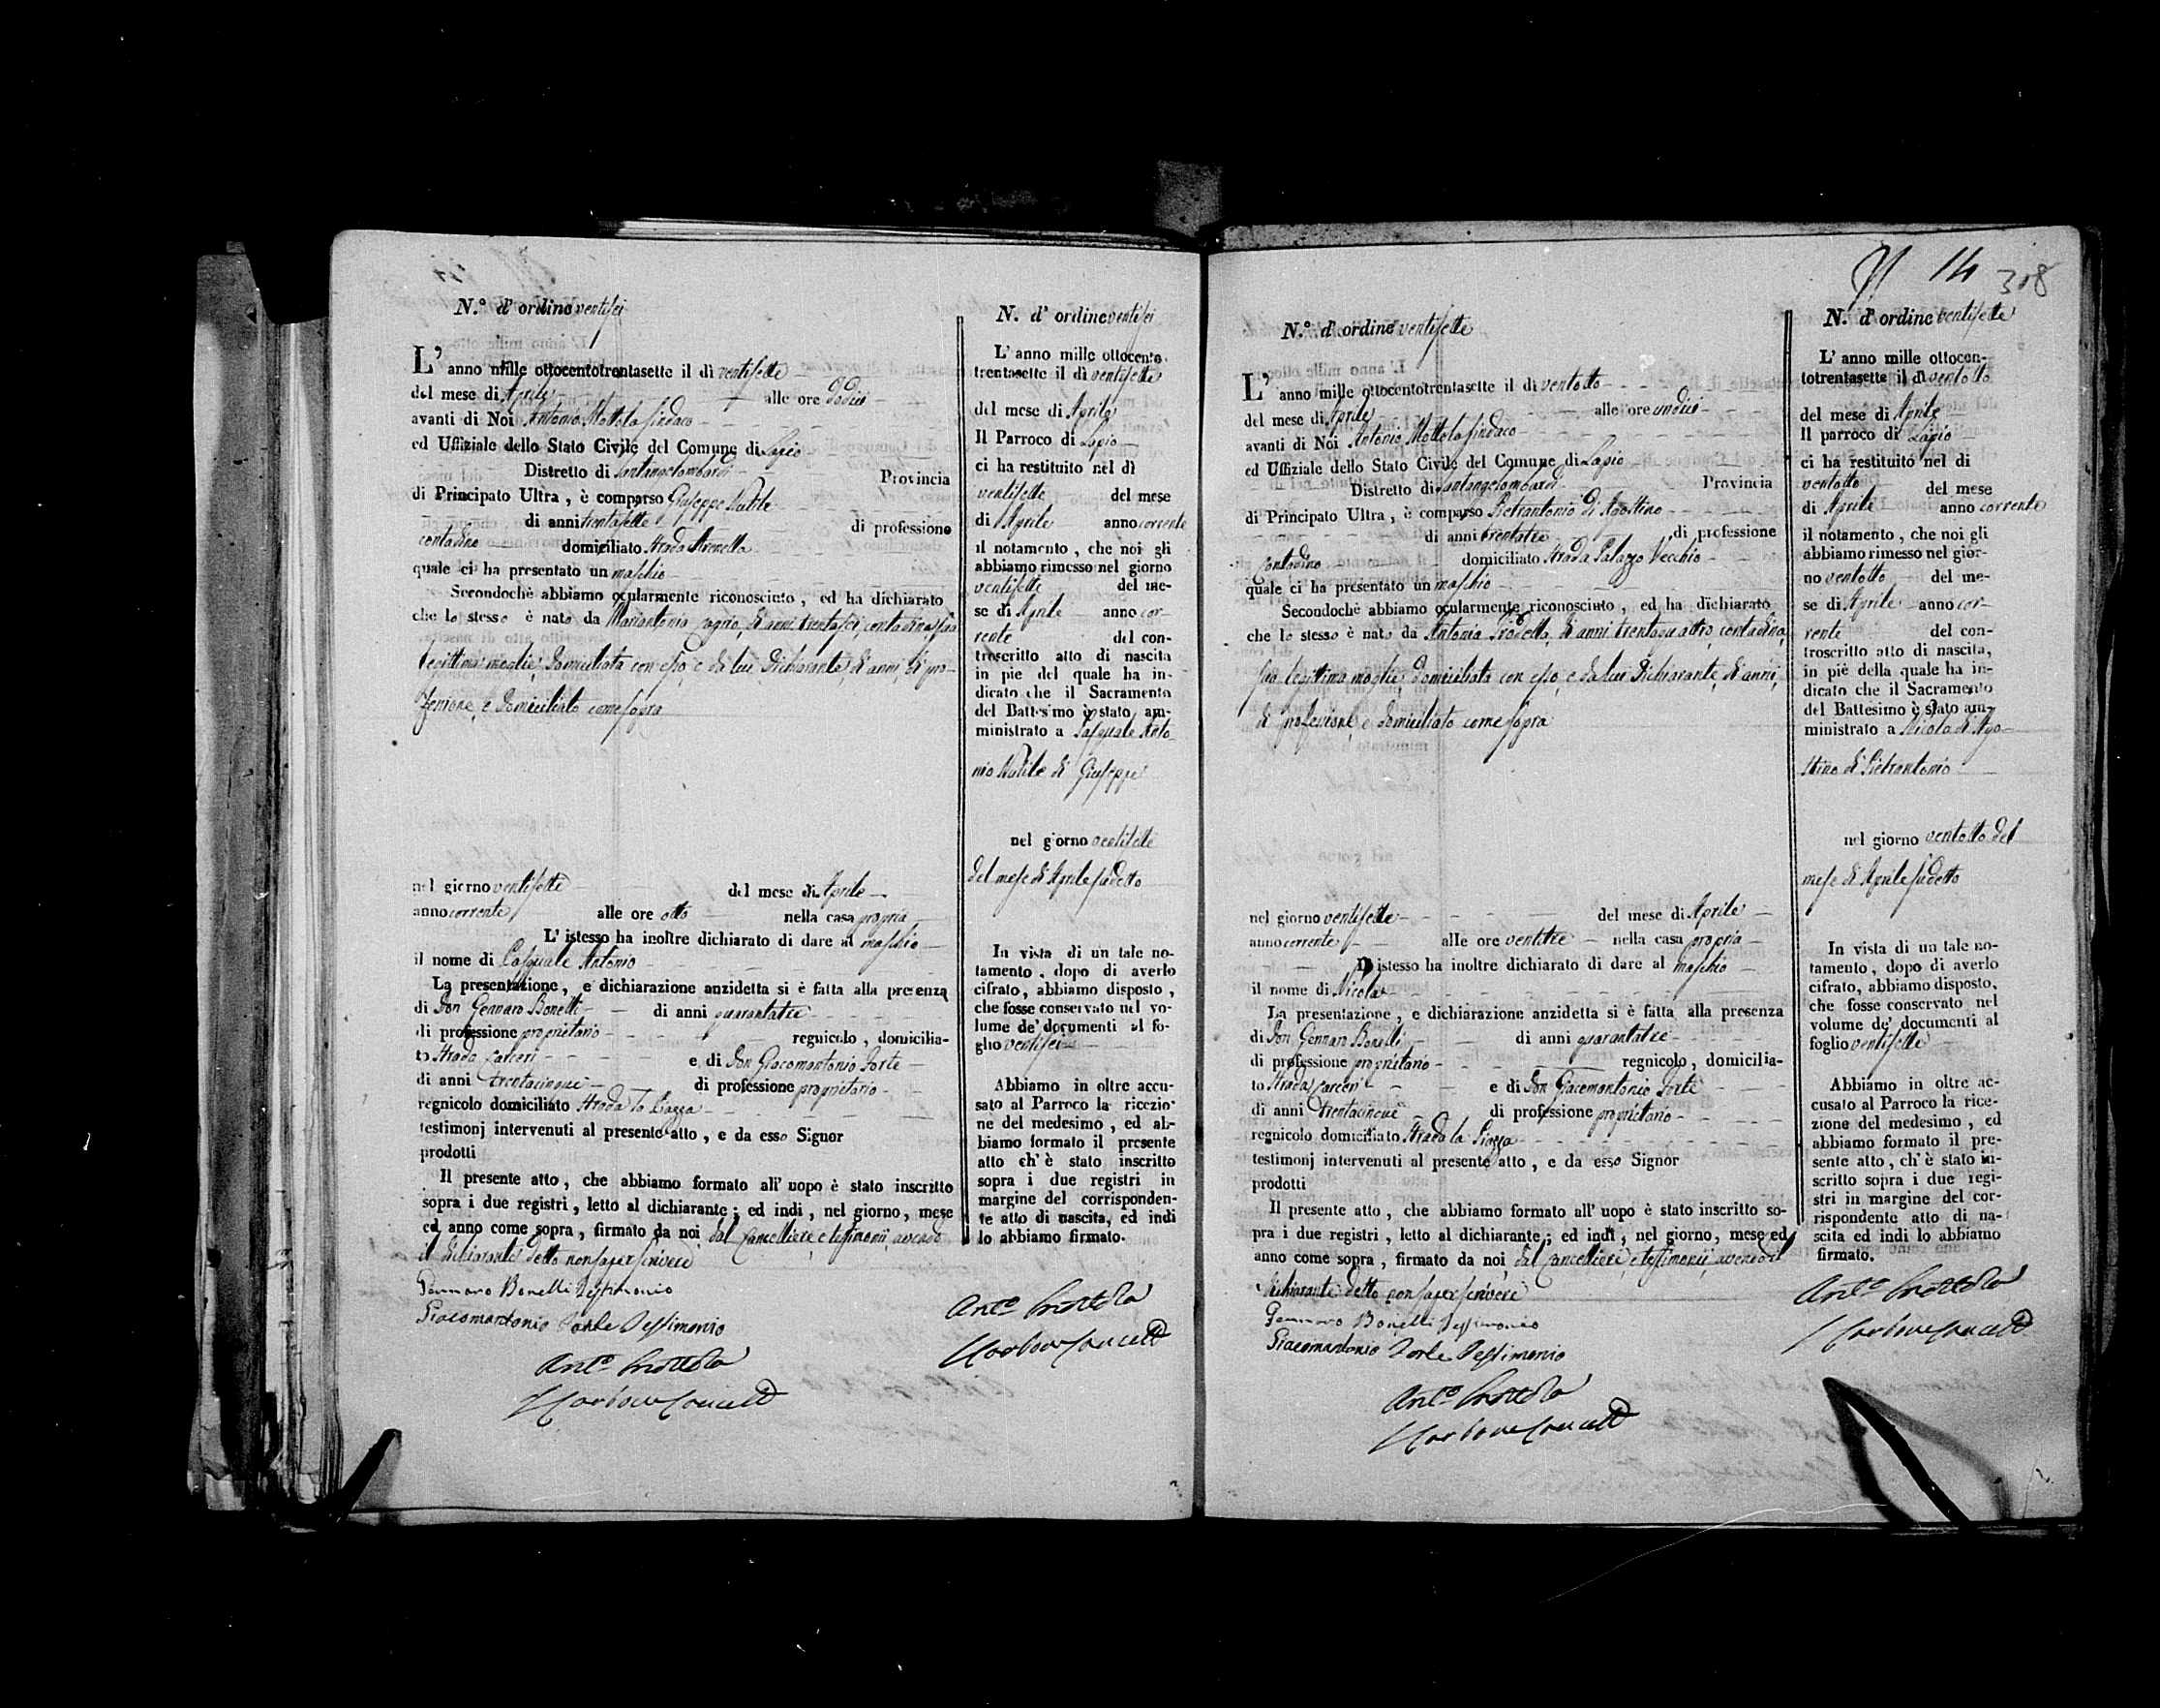 N.° d' ordine ventisei
L' anno mille ottocentotrentasette il dì ventisette
del mese di Aprile alle ore dodici
avanti di Noi Antonio Mottola Sindaco
ed Uffiziale dello Stato Civile del Comune di Lapio
Distretto di Santangelombardi Provincia
di Principato Ultra, è comparso Giuseppe
di anni trentasette di professione
contadino domiciliato Strada
quale ci ha presentato un maschio
Secondochè abbiamo ocularmente riconosciuto, ed ha dichiarato
che lo stesso è nato da Mariantonia di anni trentasei, contadina, sua
legittima moglie, domiciliata con esso, e da lui Dichiarante di anni, di pro-
fezione, e domiciliato come sopra
nel giorno ventisette del mese di Aprile
anno corrente alle ore otto nella casa propria
L' istesso ha inoltre dichiarato di dare al maschio
il nome di Pasquale Antonio
La presentazione, e dichiarazione anzidetta si è fatta alla presenza
di Don Gennaro Bonelli di anni quarantatre
di professione proprietario regnicolo, domicilia-
to Strada Carceri e di Don Giacomantonio Forte
di anni trentacinque di professione proprietario
regnicolo domiciliato Strada la Piazza
testimonj intervenuti al presente atto, e da esso Signor
prodotti
Il presente atto, che abbiamo formato all' uopo è stato inscritto
sopra i due registri, letto al dichiarante; ed indi, nel giorno, mese
ed anno come sopra, firmato da noi dal Cancelliere, e testimonii, avendo
il dichiarante detto non saper scrivere
Gennaro Bonelli Testimonio
Giacomantonio Forte Testimonio
Ant.o Mottola
N. d' ordine ventisei
L' anno mille ottocento-
trentasette il dì ventisette
del mese di Aprile
Il Parroco di Lapio
ci ha restituito nel dì
ventisette del mese
di Aprile anno corrente
il notamento, che noi gli
abbiamo rimesso nel giorno
ventisette del me-
se di Aprile anno cor-
rente del con-
troscritto atto di nascita
in pie del quale ha in-
dicato che il Sacramento
del Battesimo è stato am-
ministrato a Pasquale Anto-
nio di Giuseppe
nel giorno ventisette
del mese di Aprile sudetto
In vista di un tale no-
tamento, dopo di averlo
cifrato, abbiamo disposto,
che fosse conservato nel vo-
lume de' documenti al fo-
glio ventisei
Abbiamo in oltre accu-
sato al Parroco la ricezio-
ne del medesimo, ed ab-
biamo formato il presente
atto ch' è stato inscritto
sopra i due registri in
margine del corrisponden-
te atto di nascita, ed indi
lo abbiamo firmato.
Ant.o Mottola
14 308
N.° d' ordine ventisette
L' anno mille ottocentotrentasette il dì ventotto
del mese di Aprile alle ore undici
avanti di Noi Antonio Mottola Sindaco
ed Uffiziale dello Stato Civile del Comune di Lapio
Distretto di Santangelombardi Provincia
di Principato Ultra, è comparso Pietrantonio di Agostino
di anni trentatre di professione
Contadino domiciliato Strada Palazzo Vecchio
quale ci ha presentato un maschio
Secondochè abbiamo ocularmente riconosciuto, ed ha dichiarato
che lo stesso è nato da Antonia di anni trentaquattro, contadina,
sua legittima moglie, domiciliata con esso, e da lui Dichiarante, di anni,
di professione, e domiciliato come sopra
nel giorno ventisette del mese di Aprile
anno corrente alle ore ventitre nella casa propria
L' istesso ha inoltre dichiarato di dare al maschio
il nome di Nicola
La presentazione, e dichiarazione anzidetta si è fatta alla presenza
di Don Gennaro Bonelli di anni quarantatre
di professione proprietario regnicolo, domicilia-
to Strada Carceri e di Don Giacomantonio Forte
di anni trentacinque di professione proprietario
regnicolo domiciliato Strada la Piazza
testimonj intervenuti al presente atto, e da esso Signor
prodotti
Il presente atto, che abbiamo formato all' uopo è stato inscritto so-
pra i due registri, letto al dichiarante; ed indi, nel giorno, mese ed
anno come sopra, firmato da noi, dal Cancelliere, e testimonii, avendo il
dichiarante detto non saper scrivere
Gennaro Bonelli Testimonio
Giacomantonio Forte Testimonio
Ant.o Mottola
N. d' ordine ventisette
L' anno mille ottocen-
totrentasette il dì ventotto
del mese di Aprile
Il parroco di Lapio
ci ha restituito nel di
ventotto del mese
di Aprile anno corrente
il notamento, che noi gli
abbiamo rimesso nel gior-
no ventotto del me-
se di Aprile anno cor-
rente del con-
troscritto atto di nascita,
in piè della quale ha in-
dicato che il Sacramento
del Battesimo è stato am-
ministrato a Nicola di Ago-
stino di Pietrantonio
nel giorno ventotto del
mese di Aprile sudetto
In vista di un tale no-
tamento, dopo di averlo
cifrato, abbiamo disposto,
che fosse conservato nel
volume de' documenti al
foglio ventisette
Abbiamo in oltre ac-
cusato al Parroco la rice-
zione del medesimo, ed
abbiamo formato il pre-
sente atto, ch' è stato in-
scritto sopra i due regi-
stri in margine del cor-
rispondente atto di na-
scita ed indi lo abbiamo
firmato.
Ant.o Mottola